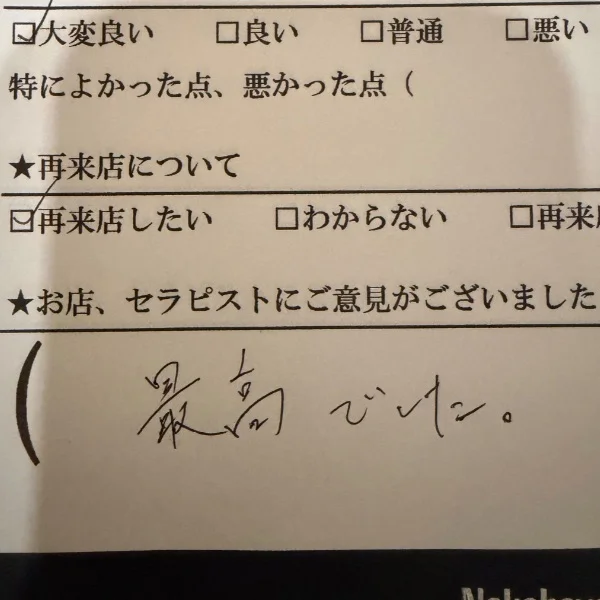 ☑大変良い □良い □普通 □悪い
特によかった点、悪かった点（
★再来店について
☑再来店したい □わからない □再来
★お店、セラピストにご意見がございました
（ 最高でした。